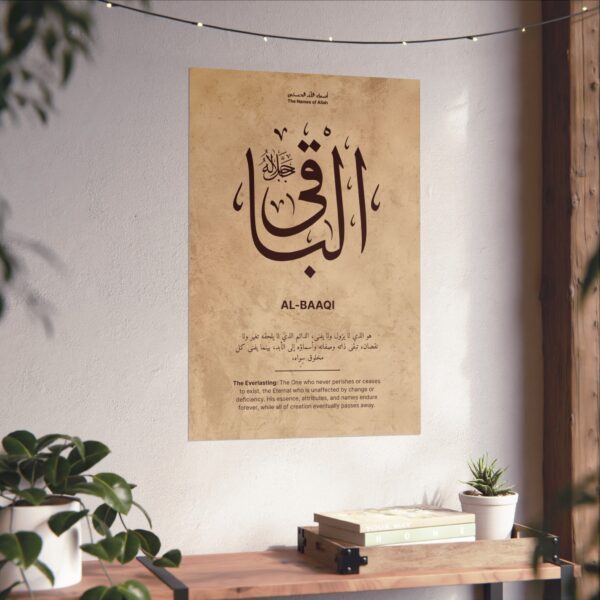 أسماء الله الحسنى
The Names of Allah
الباقي
جل جلاله
AL-BAAQI
هو الذي لا يزول ولا يفنى، الدائم الذي لا يلحقه تغير ولا
نقصان، تبقى ذاته وصفاته وأسماؤه إلى الأبد، بينما يفنى كل
مخلوق سواه.
The Everlasting: The One who never perishes or ceases
to exist, the Eternal who is unaffected by change or
deficiency. His essence, attributes, and names endure
forever, while all of creation eventually passes away.
HOME